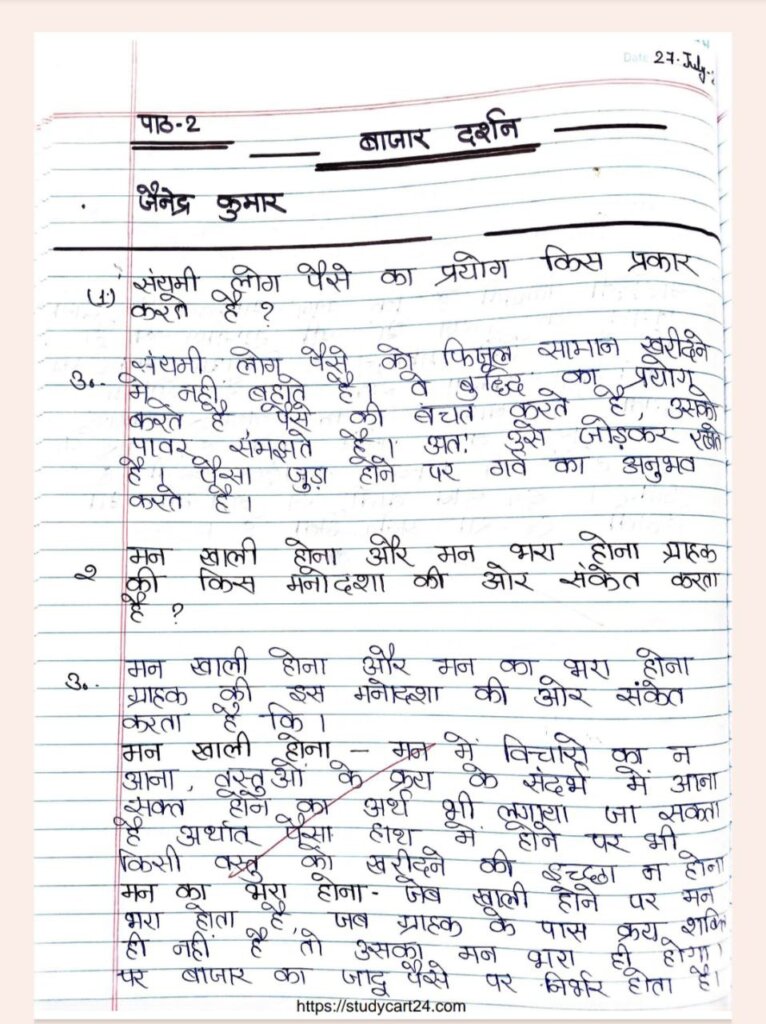 Date 27. July.
पाठ-2
बाजार दर्शन
जैनेद्र कुमार
(1.) संयमी लोग पैसे का प्रयोग किस प्रकार
करते है ?
उ.. संयमी लोग पैसे को फिजूल सामान खरीदने
मे नही बहाते है। वे बुद्धि का प्रयोग
करते है पैसे की बचत करते है, उसको
पावर समझते है। अतः उसे जोड़कर रखते
है। पैसा जुड़ा होने पर गर्व का अनुभव
करते है।
2 मन खाली होना और मन भरा होना ग्राहक
की किस मनोदशा की ओर संकेत करता
है ?
उ.. मन खाली होना और मन का भरा होना
ग्राहक की इस मनोदशा की ओर संकेत
करता है कि।
मन खाली होना – मन में विचारो का न
आना, वस्तुओं के क्रय के संदर्भ में आना
सक्त होने का अर्थ भी लगाया जा सकता
है अर्थात पैसा हाथ में होने पर भी
किसी वस्तु को खरीदने की इच्छा न होना
मन का भरा होना - जेब खाली होने पर मन
भरा होता है, जब ग्राहक के पास क्रय शक्ति
ही नहीं है तो उसका मन भरा ही होगा।
पर बाजार का जादू पैसे पर निर्भर होता है।
https://studycart24.com